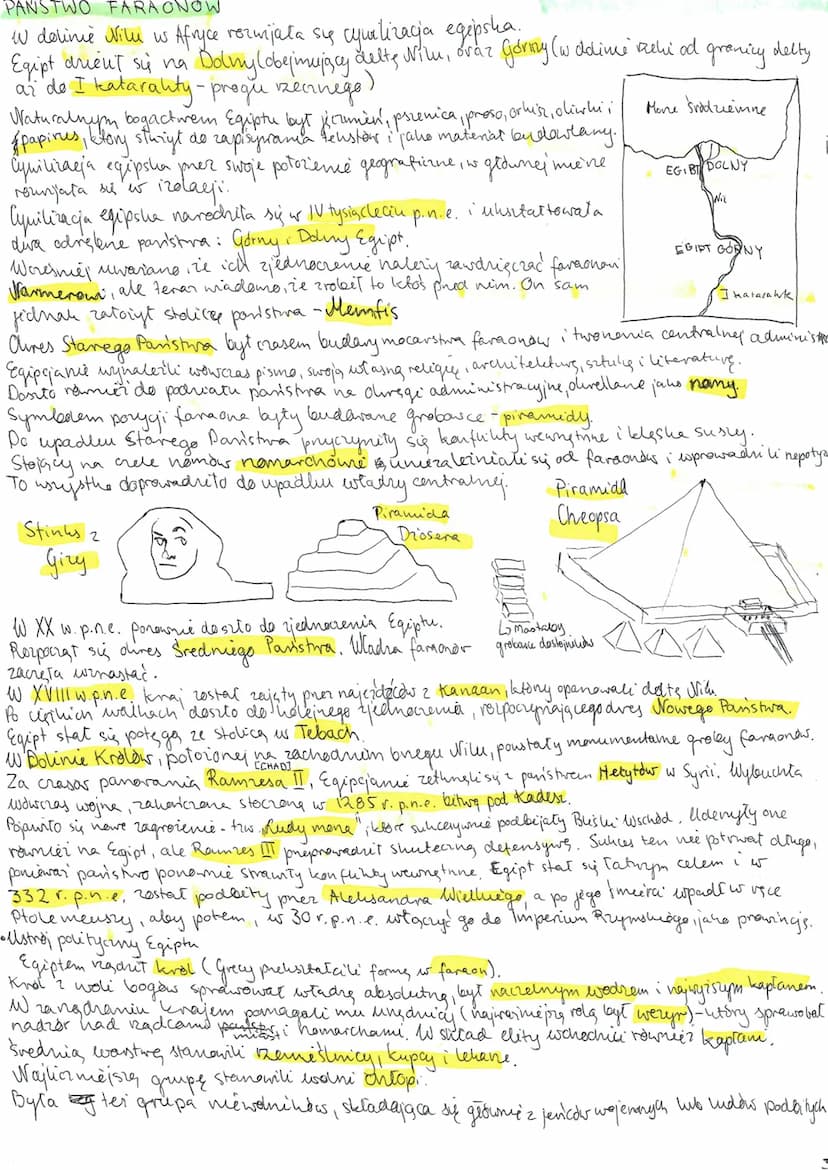 PAŃSTWO FARAONÓW
W dolinie Nilu w Afryce rozwijała się cywilizacja egipska.
Egipt dzielił się na Dolny (obejmujący deltę Nilu, oraz Górny (w dolinie rzeki od granicy delty
aż do I katarakty - progu rzecznego)
Naturalnym bogactwem Egiptu był jęczmień, pszenica, proso, orkisz, oliwki i
papirus, który służył do zapisywania tekstów i jako materiał budowlany.
Cywilizacja egipska przez swoje położenie geograficzne, w głównej mierze
rozwijała się w izolacji.
Cywilizacja egipska narodziła się w IV tysiącleciu p.n.e. i ukształtowała
dwa odrębne państwa: Górny i Dolny Egipt.
Wcześniej uważano, że ich zjednoczenie należy zawdzięczać faraonowi
Narmerowi, ale teraz wiadomo, że zrobił to ktoś przed nim. On sam
jednak założył stolicę państwa - Memfis
Morze Śródziemne
EGIPT DOLNY
Nil
EGIPT GÓRNY
I katarakta
Okres Starego Państwa był czasem budowy mocarstwa faraonów i tworzenia centralnej administr
Egipcjanie wynaleźli wówczas pismo, swoją własną religię, architekturę, sztukę i literaturę.
Doszło również do podziału państwa na okręgi administracyjne, określane jako nomy.
Symbolem pozycji faraona były budowane grobowce - piramidy.
Do upadku Starego Państwa przyczyniły się konflikty wewnętrzne i klęska suszy.
Stojący na czele nomów nomarchowie uniezależniali się od faraonów i wprowadzili nepotyz
To wszystko doprowadziło do upadku władzy centralnej.
Sfinks z
Gizy
Piramida
Dżosera
Piramida
Cheopsa
↳ Mastaby
grobowce dostojników
W XX w. p.n.e. ponownie doszło do zjednoczenia Egiptu.
Rozpoczął się okres Średniego Państwa. Władza faraonów
zaczęła wzrastać.
W XVIII w p.n.e. kraj został zajęty przez najeźdźców z Kanaan, który opanowali deltę Nilu.
Po ciężkich walkach doszło do kolejnego zjednoczenia, rozpoczynającego okres Nowego Państwa.
Egipt stał się potęgą ze stolicą w Tebach.
W Dolinie Królów, położonej na zachodnim brzegu Nilu, powstały monumentalne groby faraonów.
Za czasów panowania Ramzesa II, Egipcjanie zetknęli się z państwem Hetytów w Syrii. Wybuchła
wówczas wojna, zakończona stoczoną w 1285 r. p.n.e. bitwą pod Kadesz.
Pojawiło się nowe zagrożenie - tzw. "Ludy morza", które sukcesywnie podbijały Bliski Wschód. Uderzyły one
również na Egipt, ale Ramzes III przeprowadził skuteczną defensywę. Sukces ten nie potrwał długo,
ponieważ państwo ponownie strawiły konflikty wewnętrzne. Egipt stał się łatwym celem i w
332 r. p.n.e. został podbity przez Aleksandra Wielkiego, a po jego śmierci wpadł w ręce
Ptolemeuszy, aby potem, w 30 r. p.n.e. włączyć go do Imperium Rzymskiego, jako prowincję.
• Ustrój polityczny Egiptu
Egiptem rządził król (Grecy przekształcili formę w faraon).
Król z woli bogów sprawował władzę absolutną, był naczelnym wodzem i najwyższym kapłanem.
W zarządzaniu krajem pomagali mu urzędnicy (najważniejszą rolą był wezyr) - który sprawował
nadzór nad rządcami miast i nomarchami. W skład elity wchodzili również kapłani.
Średnią warstwę stanowili rzemieślnicy, kupcy i lekarze.
Najliczniejszą grupę stanowili wolni chłopi.
Była też grupa niewolników, składająca się głównie z jeńców wojennych lub ludów podbitych